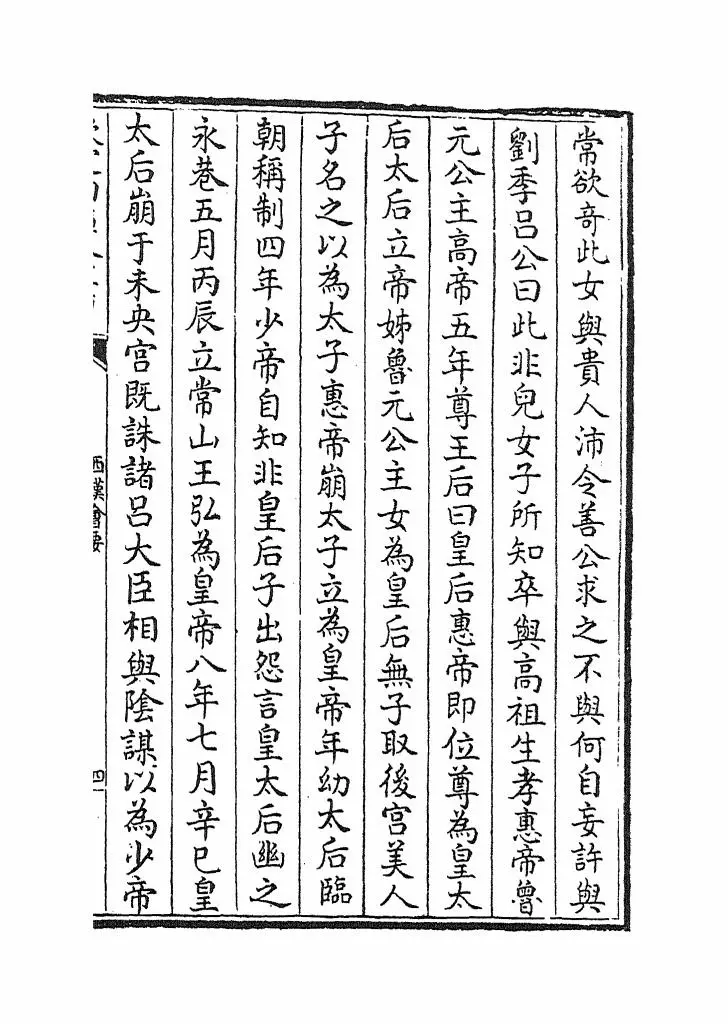 常欲奇此女與貴人沛令善公求之不與何自妄許與
劉季呂公曰此非兒女子所知卒與高祖生孝惠帝魯
元公主高帝五年尊王后曰皇后惠帝即位尊為皇太
后太后立帝姊魯元公主女為皇后無子取後宮美人
子名之以為太子惠帝崩太子立為皇帝年幼太后臨
朝稱制四年少帝自知非皇后子出怨言皇太后幽之
永巷五月丙辰立常山王弘為皇帝八年七月辛巳皇
太后崩于未央宮既誅諸呂大臣相與陰謀以為少帝
西漢會要
四